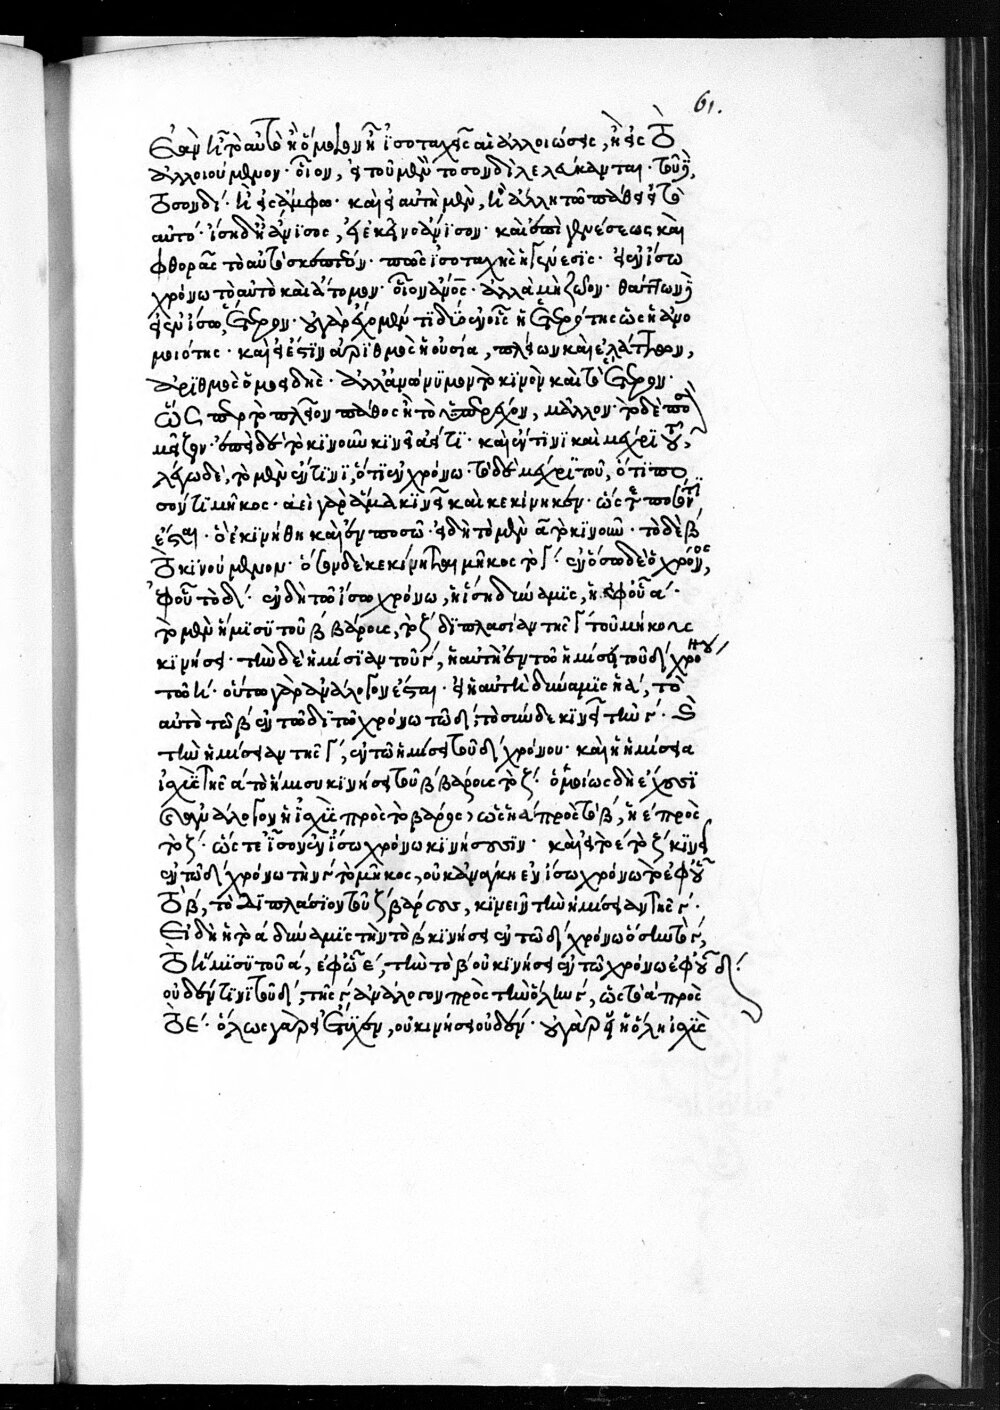 61.
ἐὰν ᾖ τὸ αὐτὸ ἢ ὅμοιον ἢ ἰσοταχεῖς αἱ ἀλλοιώσεις, ἢ εἰς τὸ
ἀλλοιούμενον· οἷον, εἰ τοῦ μὲν τοσονδὶ λελεύκανται· τοῦ δὲ,
τοσονδί· ἢ εἰς ἄμφω· καὶ εἰ αὐτὴ μὲν, ἢ ἄλλη τῷ πάθει εἰ τὸ
αὐτό· ἴση δ' ἢ ἄνισος, εἰ ἐκεῖνο ἄνισον· καὶ ἐπὶ γενέσεως καὶ
φθορᾶς τὸ αὐτὸ σκεπτέον· πῶς ἰσοταχὴς ἡ γένεσις· εἰ ἐν ἴσῳ
χρόνῳ τὸ αὐτὸ καὶ ἄτομον· οἷον ἄνος· ἀλλὰ μὴ ζῷον· θάττων δ
εἰ ἐν ἴσῳ, ἕτερον· οὐ γὰρ ἔχομέν τι δύο ἐν οἷς ἡ ἑτερότης ὡς ἡ ἀνο
μοιότης· καὶ εἰ ἔστιν ἀριθμὸς ἡ οὐσία, πλείων καὶ ἐλάττων,
ἀριθμὸς ὁμοειδής· ἀλλ' ἀνώνυμον τὸ κοινὸν καὶ τὸ ἑκάτερον·
ὥσπερ τὸ πλεῖον πάθος ἢ τὸ ὑπερέχον, μᾶλλον· τὸ δὲ ποσὸν
μεῖζον· ἐπεὶ δὲ τὸ κινοῦν κινεῖ ἀεί τι· καὶ ἔν τινι καὶ μέχρι του,
λέγω δὲ, τὸ μὲν ἔν τινι, ὅτι ἐν χρόνῳ· τὸ δὲ μέχρι του, ὅτι πο
σόν τι μῆκος· ἀεὶ γὰρ ἅμα κινεῖ καὶ κεκίνηκεν· ὥστε ποσόν τι
ἔσται· ὃ ἐκινήθη καὶ ἐν ποσῷ· εἰ δὴ τὸ μὲν α τὸ κινοῦν· τὸ δὲ β
τὸ κινούμενον· ὅσον δὲ κεκίνηται μῆκος τὸ γ· ἐν ὅσῳ δὲ ὁ χρόνος,
ἐφ' οὗ τὸ δ· ἐν δὴ τῷ ἴσῳ χρόνῳ, ἡ ἴση δύναμις, ἡ ἐφ' οὗ α·
τὸ μὲν ἥμισυ τοῦ β βάρους, τὸ ζ διπλασίαν τῆς γ τοῦ μήκους
κινήσει· τὴν δὲ ἡμίσειαν τοῦ γ, ἡ αὐτὴ ἐν τῷ ἡμίσει τοῦ δ χρόνου
τῷ η· οὕτω γὰρ ἀνάλογον ἔσται· εἰ ἡ αὐτὴ δύναμις ἡ α, τὸ
αὐτὸ τὸ β ἐν τῳδὶ τῷ χρόνῳ τῷ δ, τοσήνδε κινεῖ τὴν γ· καὶ
τὴν ἡμίσειαν τῆς γ, ἐν τῷ ἡμίσει τοῦ δ χρόνου· καὶ ἡ ἡμίσεια
ἰσχὺς τῆς α τὸ ἥμισυ κινήσει τοῦ β βάρους τὸ ζ· ὁμοίως δὴ ἔχουσι
καὶ ἀνάλογον ἡ ἰσχὺς πρὸς τὸ βάρος, ὡς ἡ α πρὸς τὸ β, ἡ ε πρὸς
τὸ ζ· ὥστε ἴσον ἐν ἴσῳ χρόνῳ κινήσουσιν· καὶ εἰ τὸ ε τὸ ζ κινεῖ
ἐν τῷ δ χρόνῳ τὴν γ τὸ μῆκος, οὐκ ἀνάγκη ἐν ἴσῳ χρόνῳ τὸ ἐφ' οὗ
τὸ β, τὸ διπλάσιον τοῦ ζ βάρους, κινεῖν τὴν ἡμίσειαν τῆς γ·
εἰ δὴ ἡ τὸ α δύναμις τὴν τὸ β κινήσει ἐν τῷ δ χρόνῳ ὅσην τὸ γ,
τὸ ἥμισυ τοῦ α, ἐφ' ᾧ ε, τὴν τὸ β οὐ κινήσει ἐν τῷ χρόνῳ ἐφ' οὗ δ
οὐδ' ἔν τινι τοῦ δ, τῆς γ ἀνάλογον πρὸς τὴν ὅλην γ, ὡς τὸ α πρὸς
τὸ ε· ὅλως γὰρ εἰ ἔτυχεν, οὐ κινήσει οὐδέν· οὐ γὰρ εἰ ἡ ὅλη ἰσχὺς